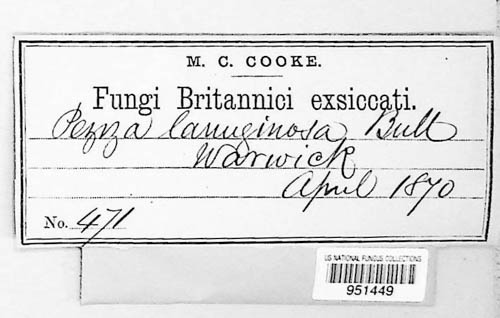 M. C. COOKE.
Fungi Britannici exsiccati.
Peziza lanuginosa Bull
Warwick
April 1870
No. 471
US NATIONAL FUNGUS COLLECTIONS
951449